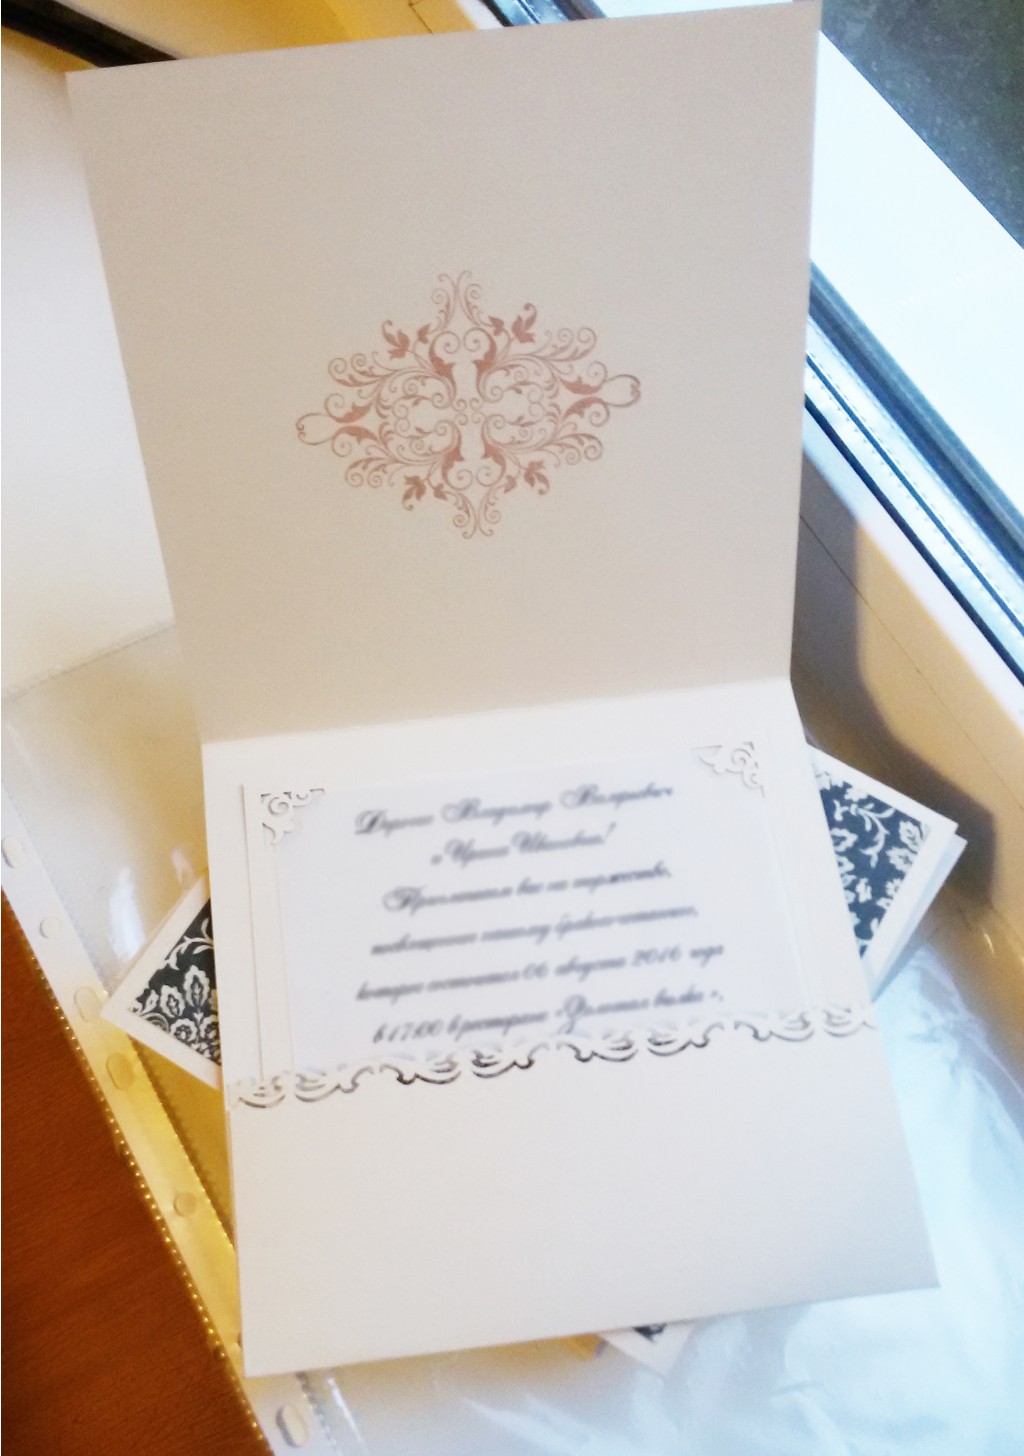 Дорогие Владимир Валерьевич
и Ирина Ивановна!
Приглашаем вас на торжество,
посвященное нашему бракосочетанию,
которое состоится 06 августа 2016 года
в 17:00 в ресторане « вилка »,